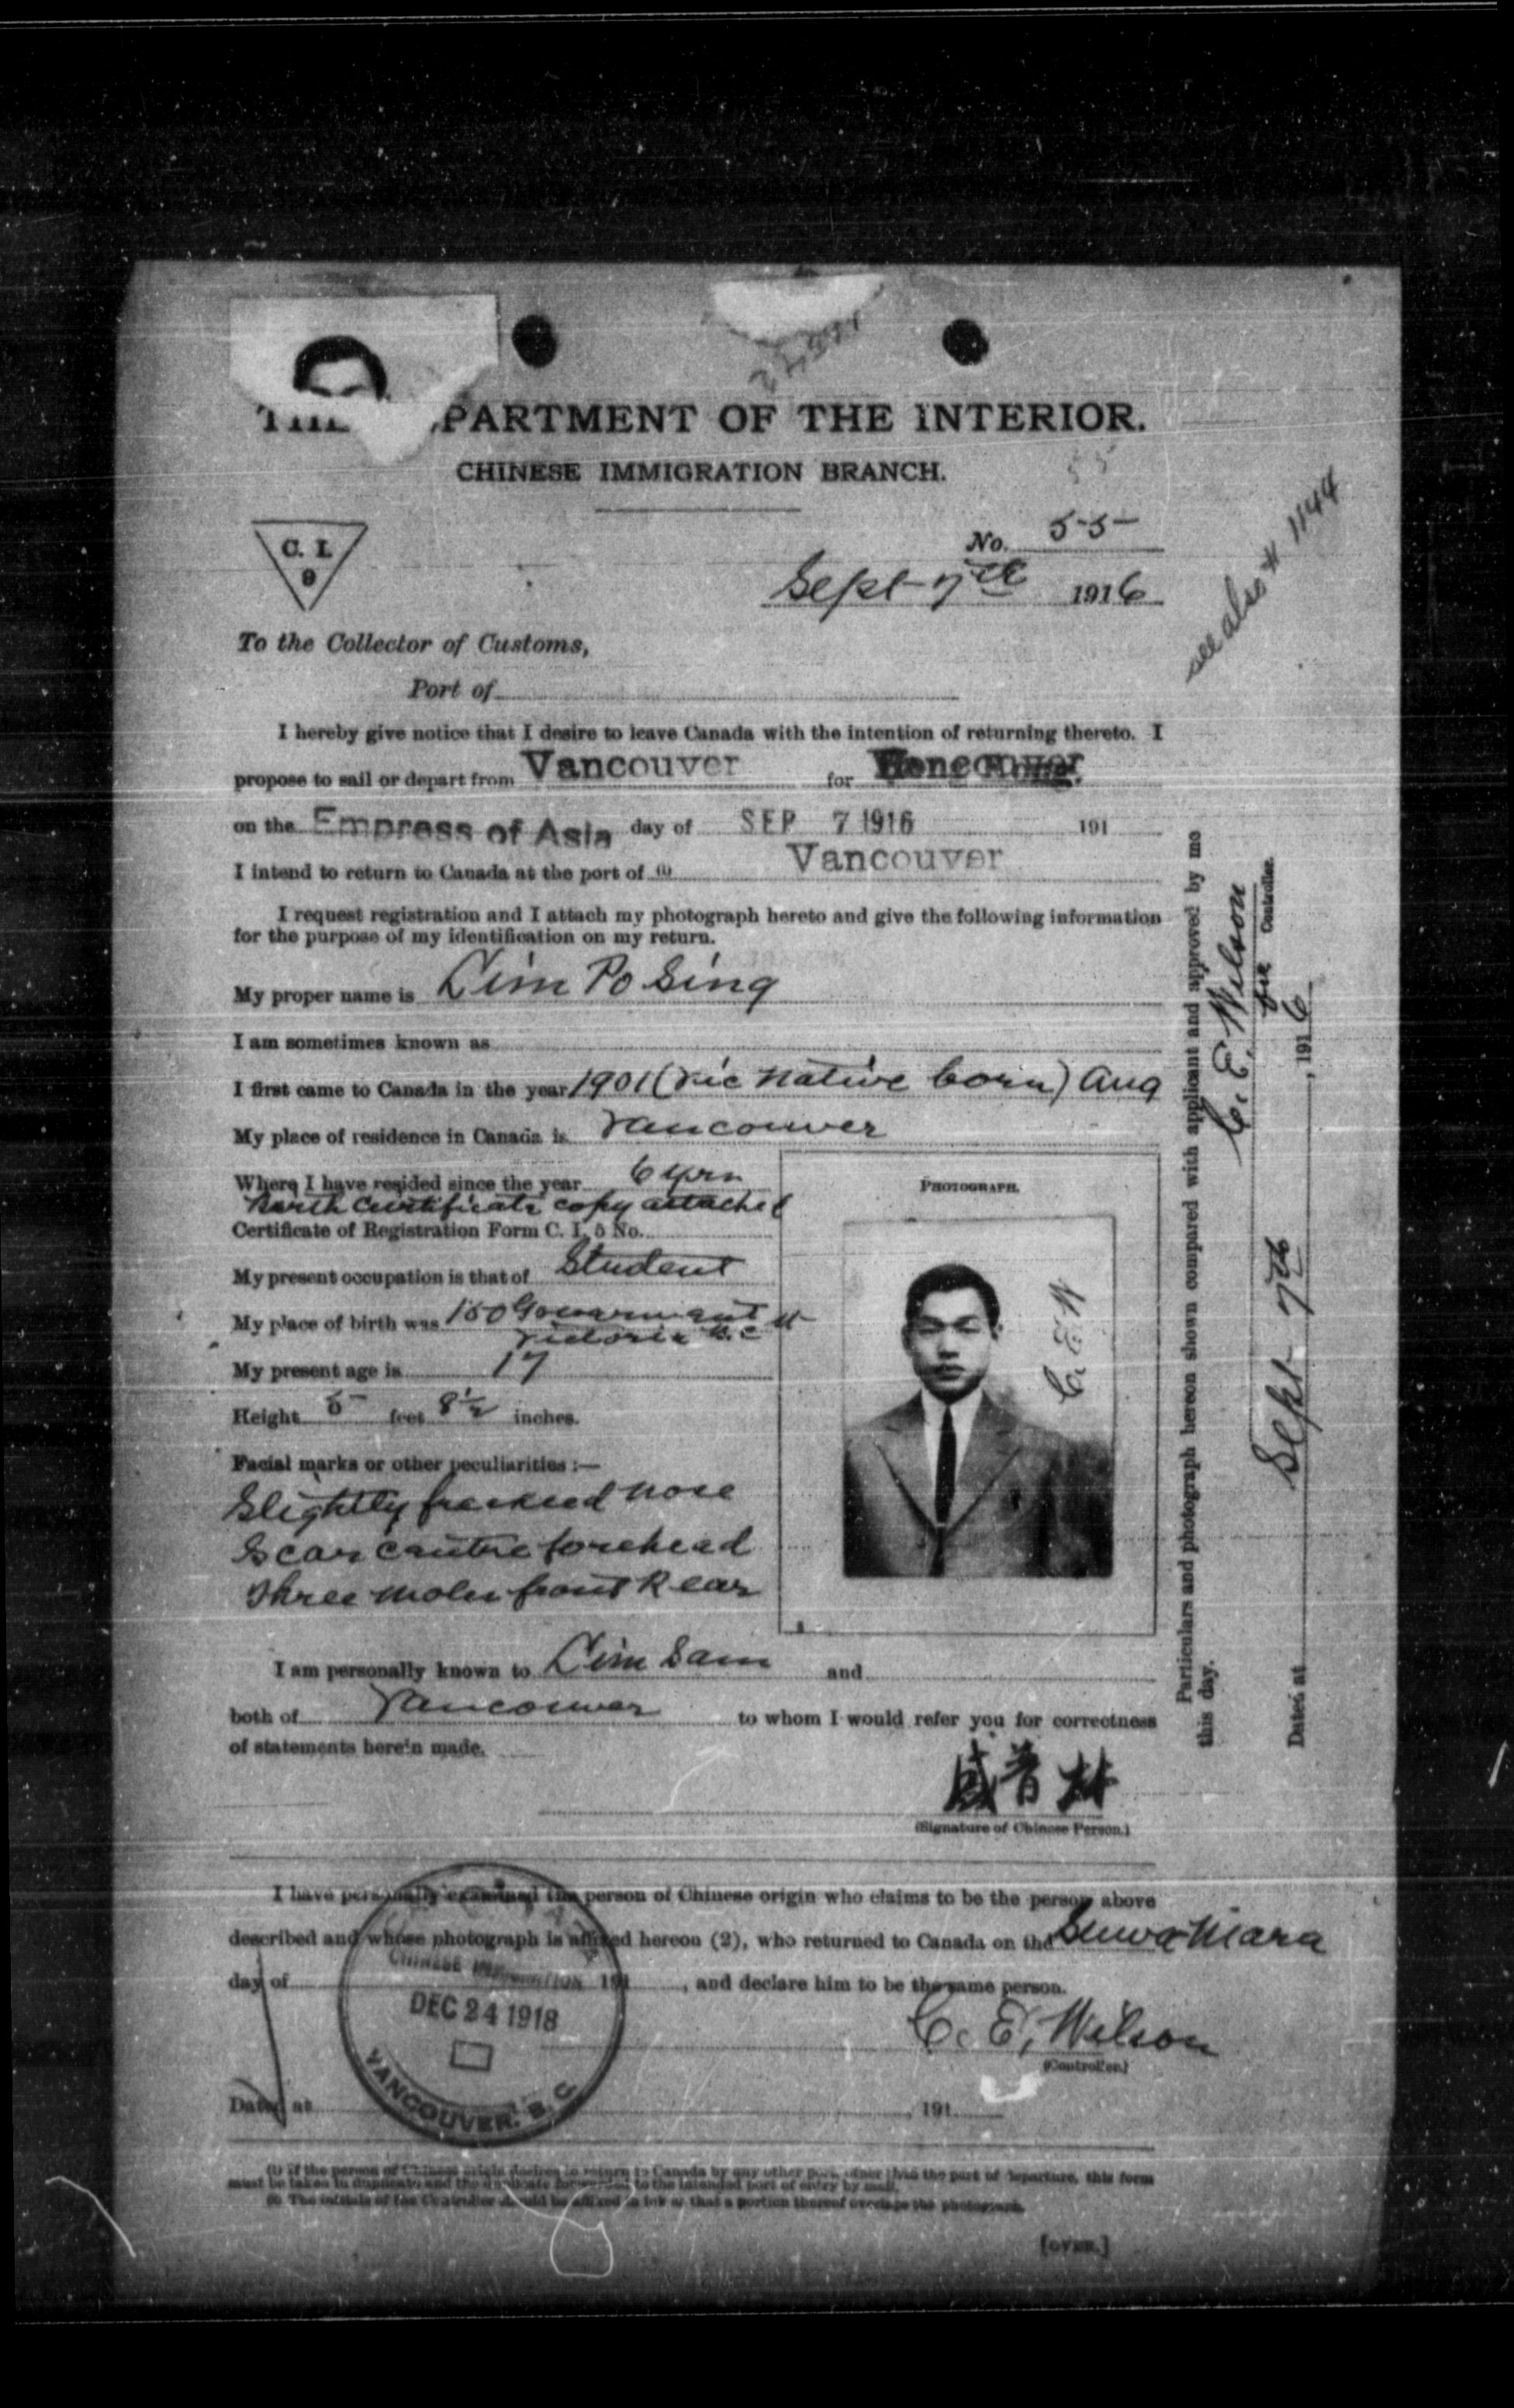 PARTMENT OF THE INTERIOR.
CHINESE IMMIGRATION BRANCH.
C. I.
9
No. 55
Sept 7th 1916
see also # 1144
To the Collector of Customs,
Port of
I hereby give notice that I desire to leave Canada with the intention of returning thereto. I
propose to sail or depart from Vancouver for
on the Empress of Asia day of SEP 7 1916 191
I intend to return to Canada at the port of (1) Vancouver
I request registration and I attach my photograph hereto and give the following information
for the purpose of my identification on my return.
My proper name is Lim Po Sing
I am sometimes known as
I first came to Canada in the year 1901 (Vic native born) Aug
My place of residence in Canada is Vancouver
Where I have resided since the year 6 yrs
Birth certificate copy attached
Certificate of Registration Form C. I. 5 No.
My present occupation is that of Student
My place of birth was 150 Government St
Victoria B.C
My present age is 17
Height 5 feet 8½ inches.
Facial marks or other peculiarities :—
Slightly freckled nose
Scar centre forehead
Three moles front R ear
PHOTOGRAPH.
C. E. W
I am personally known to Lim Sam and
both of Vancouver to whom I would refer you for correctness
of statements herein made.
盛普林
(Signature of Chinese Person.)
I have personally examined the person of Chinese origin who claims to be the person above
described and whose photograph is affixed hereon (2), who returned to Canada on the Suwa Mara
day of 191 , and declare him to be the same person.
CHINESE IMMIGRATION
DEC 24 1918
VANCOUVER. B. C.
C. E. Wilson
(Controller.)
Dated at 191
(1) If the person of Chinese origin desires to return to Canada by any other port, other than the port of departure, this form
must be taken in duplicate and the duplicate forwarded to the intended port of entry by mail.
(2) The initials of the Controller should be affixed in ink so that a portion thereof overlaps the photograph.
[OVER.]
Particulars and photograph hereon shown compared with applicant and approved by me
this day.
C. E. Wilson
Controller.
Dated at Sept 7th , 1916